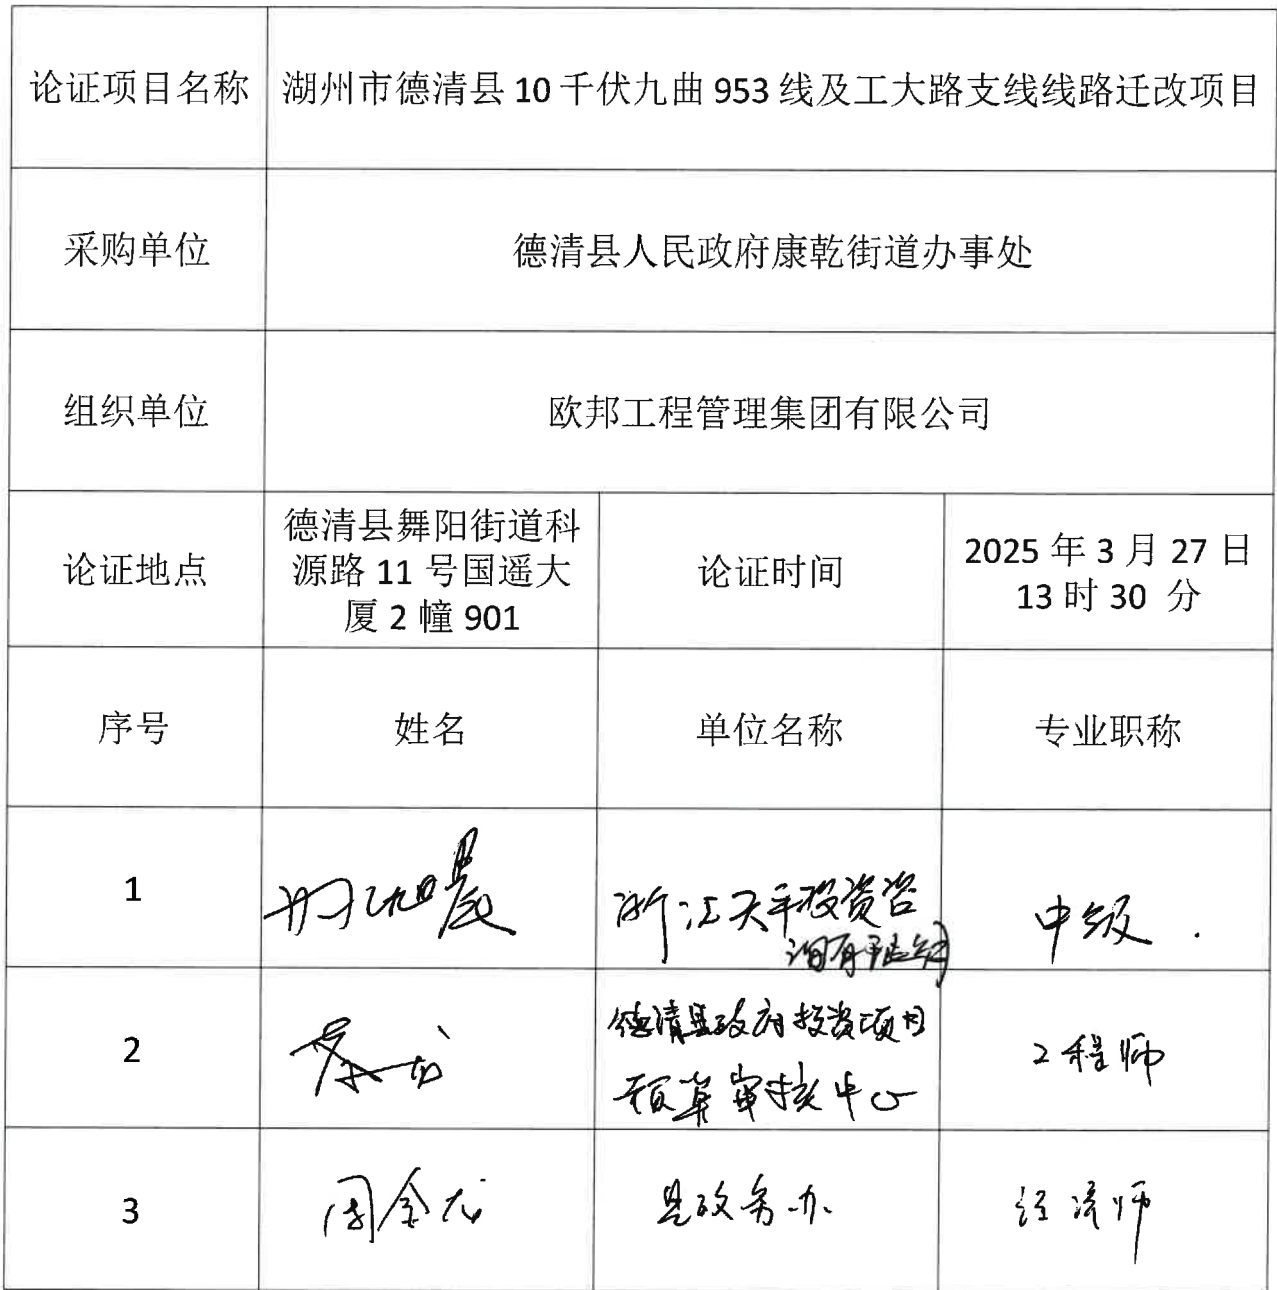 论证项目名称
湖州市德清县10千伏九曲953线及工大路支线线路迁改项目
采购单位
德清县人民政府康乾街道办事处
组织单位
欧邦工程管理集团有限公司
论证地点
德清县舞阳街道科
源路11号国遥大
厦2幢901
论证时间
2025年3月27日
13时30 分
序号
姓名
单位名称
专业职称
1
浙江天平投资咨
询有限公司
中级.
2
德清县政府投资项目
预算审核中心
工程师
3
周金龙
县政务办.
经济师